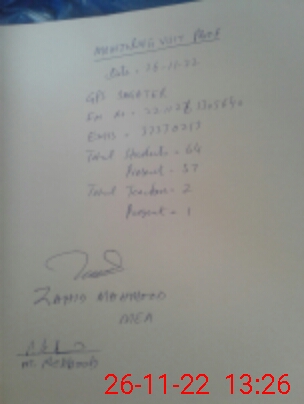 MONITORING VISIT PROOF
Date = 26-11-22
GPS
EMIS = 37370217
Total Students = 64
Present = 57
Total Teachers = 2
Present = 1
ZAHID MEHMOOD
MEA
M. MEHBOOB
26-11-22 13:26